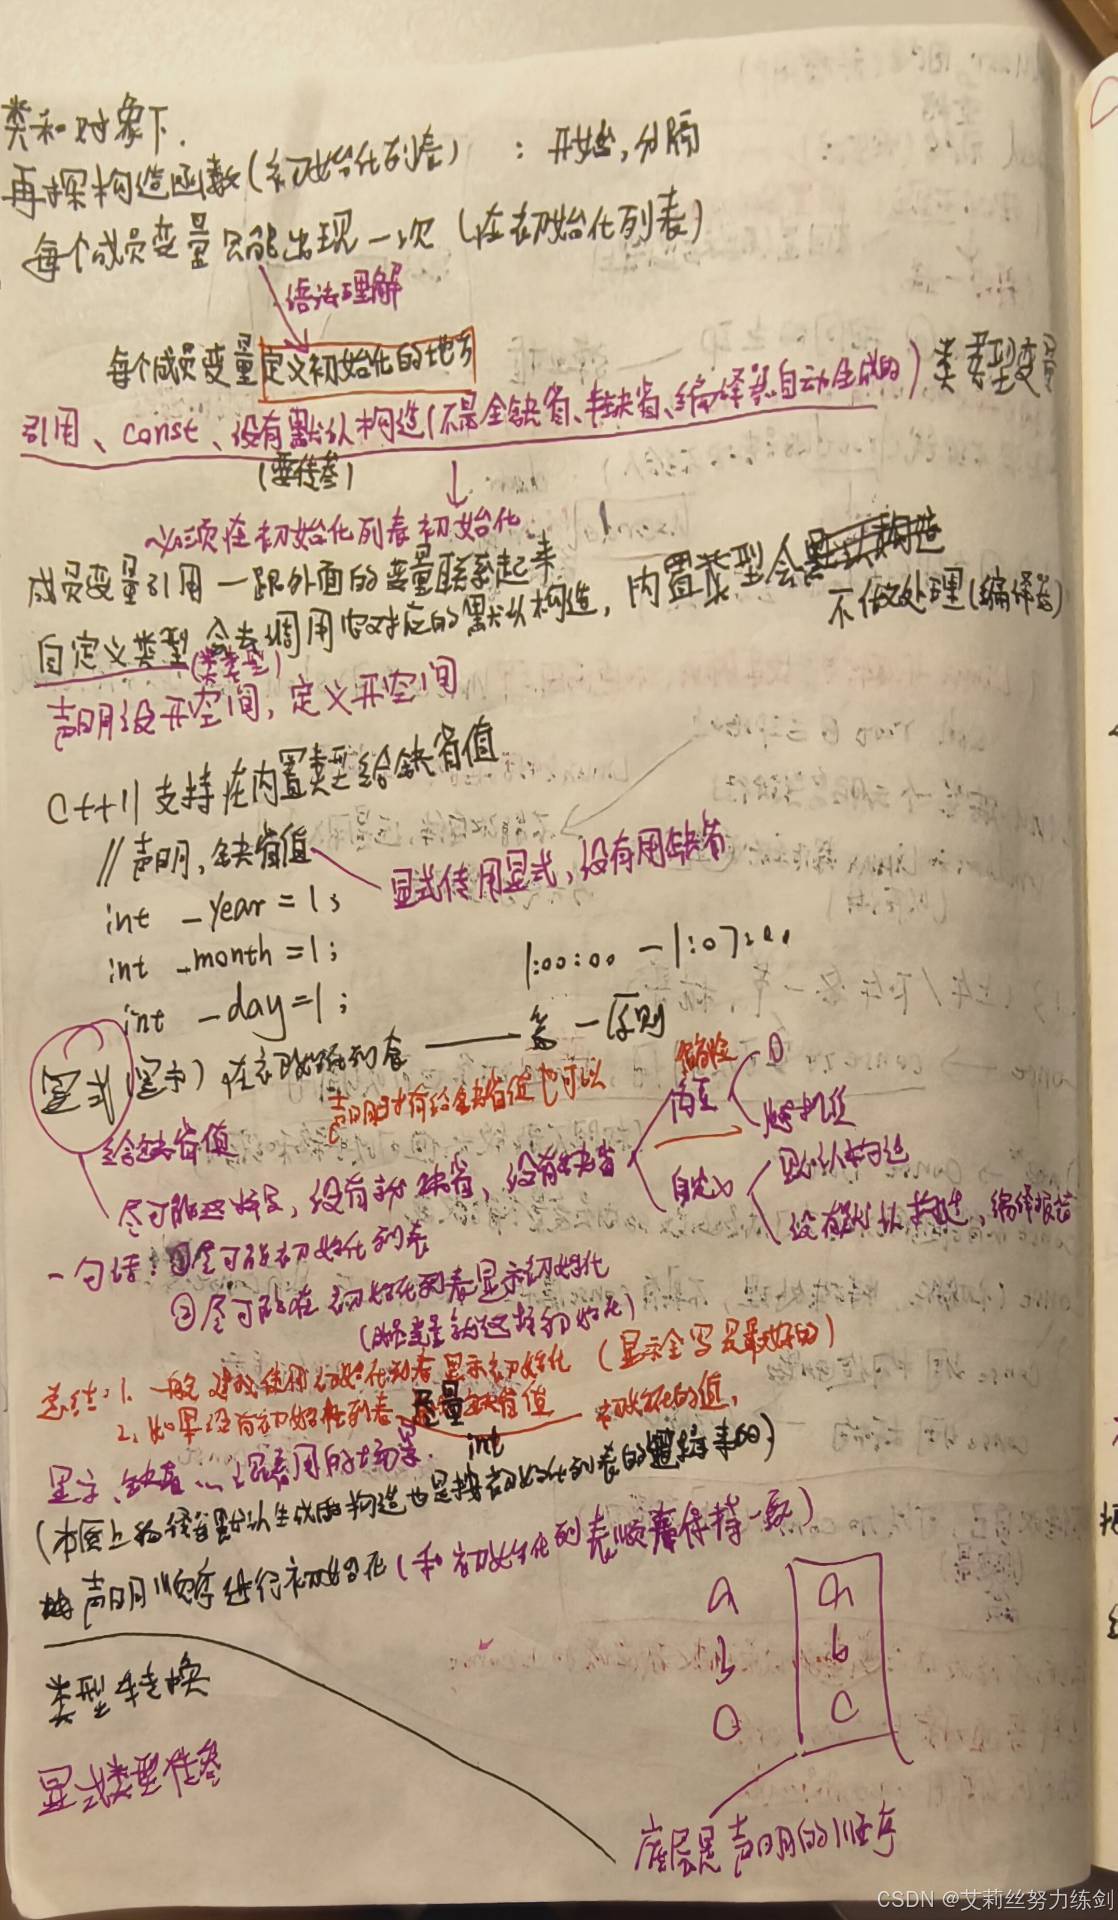 类和对象下.
再探构造函数(初始化列表) : 开始, 分隔
每个成员变量只能出现一次 (在初始化列表)
语法理解
每个成员变量定义初始化的地方
引用、const、没有默认构造(不是全缺省、编译器自动生成的) 类类型变量
(要传参)
必须在初始化列表初始化
成员变量引用一跟外面的变量联系起来
自定义类型会去调用它对应的默认构造, 内置类型会
不做处理(编译器)
(类类型)
声明没开空间, 定义开空间
C++11支持在内置类型给缺省值
//声明, 缺省值
显式传用显式, 没有用缺省
int _year = 1;
int _month = 1;
int _day = 1;
1:00:00 - 1:07:00
显式(显示)在初始化列表 —— 第一原则
声明时有给缺省值也可以
给缺省值
尽可能这样写, 没有就缺省, 没有缺省
内置
随机值
自定义
默认构造
没有默认构造, 编译报错
一句话: ①尽可能初始化列表
②尽可能在初始化列表显示初始化
(成员变量就这样初始化)
总结: 1. 一般建议使用初始化列表显示初始化 (显示全写是最好的)
2. 如果没有初始化列表 尽量 缺省值 初始化的值,
int
(本质上编译器默认生成的构造也是按初始化列表的逻辑来的)
按声明顺序进行初始化(和初始化列表顺序保持一致)
a a
b b
c c
类型转换
显式类型传参
底层是声明的顺序
CSDN @艾莉丝努力练剑